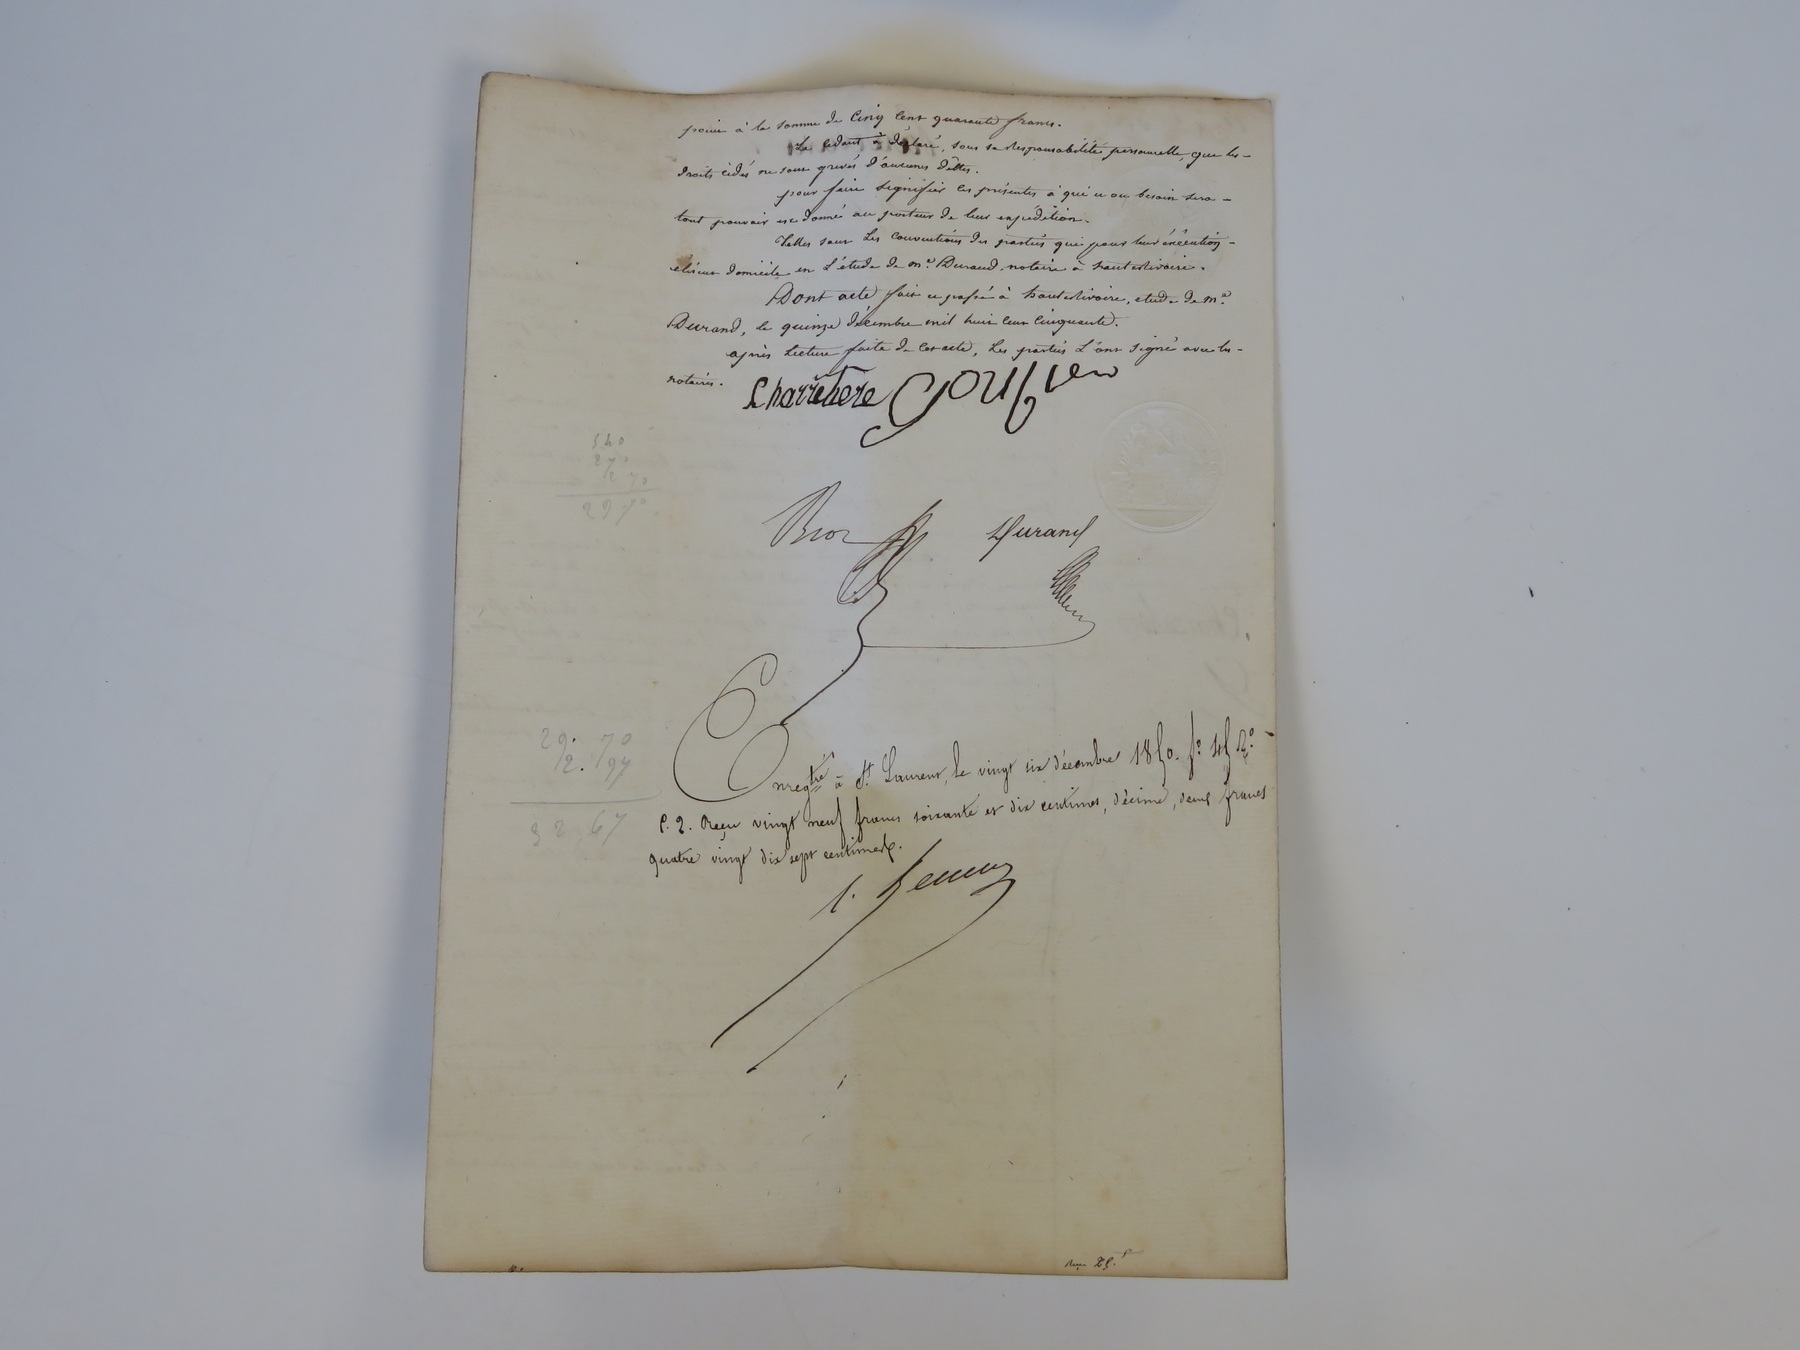 peine à la somme de Cinq Cent quarante francs.
Le Cédant a déclaré, sous sa responsabilité personnelle, que les
droits cédés ne sont grevés d'aucunes dettes.
pour faire signifier les présentes à qui et ou besoin sera
tout pouvoir est donné au porteur de leur expédition.
Telles sont Les Conventions des parties qui pour leur éxécution
élisent domicile en L'étude de me Durand, notaire à hauterivoire.
Dont acte, fait et passé à hauterivoire, etude de me
Durand, le quinze décembre mil huit cent cinquante.
après Lecture faite de Cet acte, Les parties L'ont signé avec les
notaires.
Charretiere
540
270
2 70
29 70
Durand
Enregtré à St Laurent, le vingt six décembre 1850. fo 45 Ro
29. 70
2. 97
32, 67
C. 2. Reçu vingt neuf francs soixante et dix centimes, décime, deux francs
quatre vingt dix sept centimes.